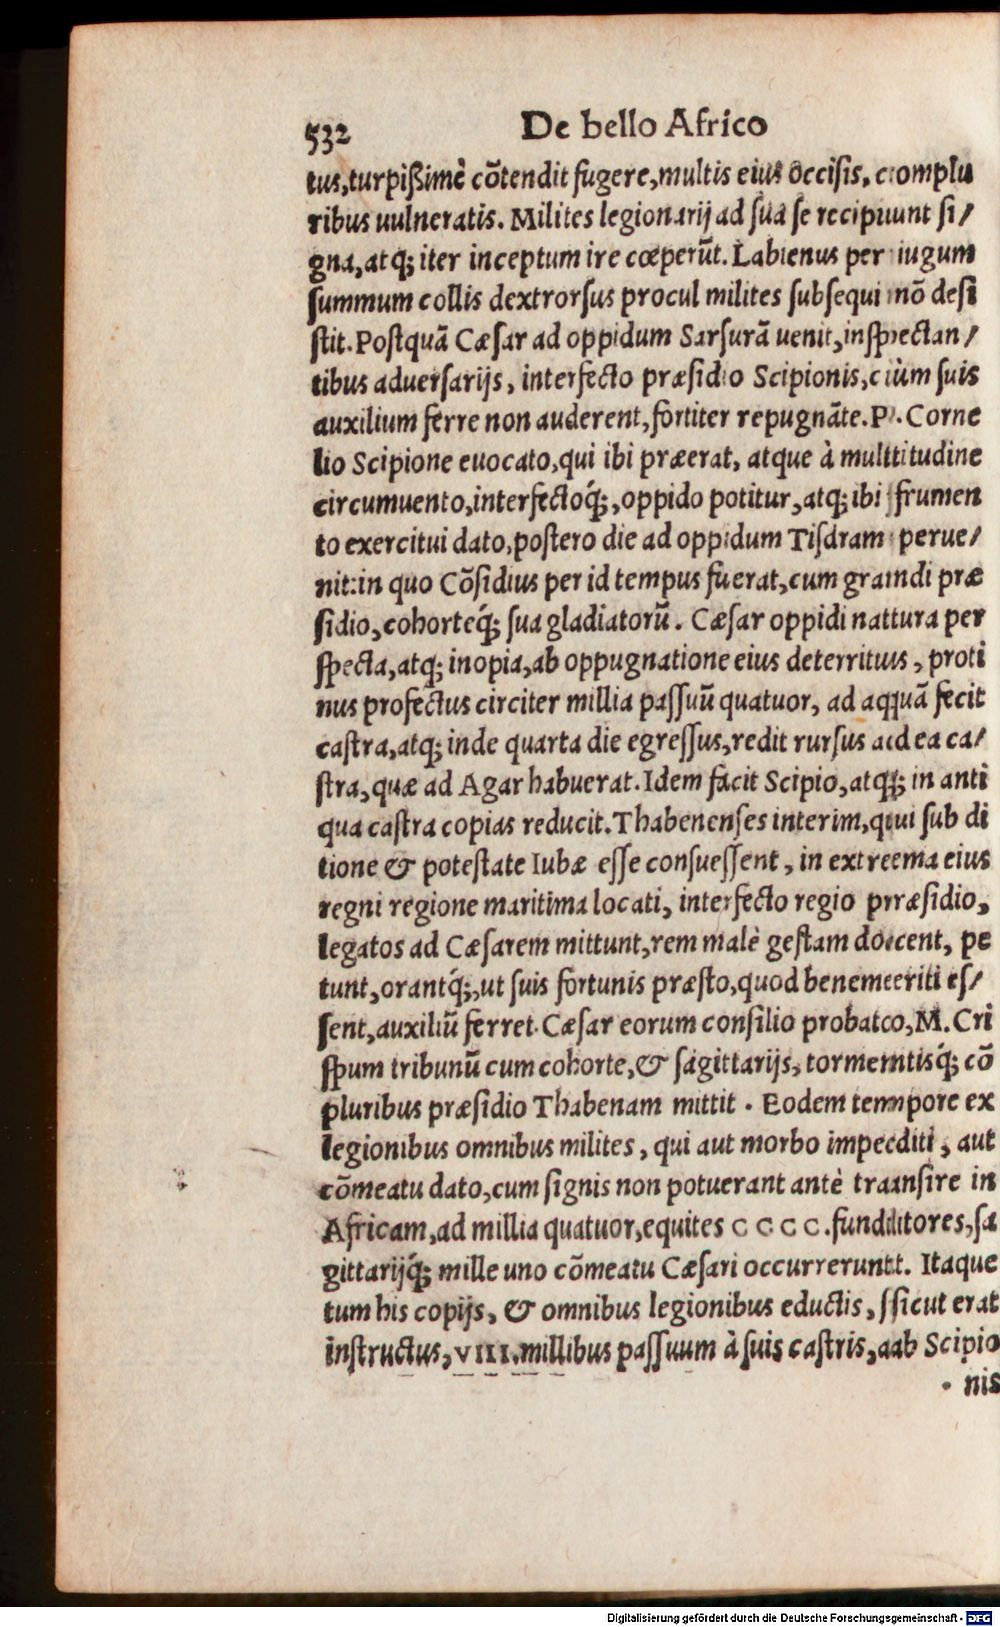 532 De bello Africo
tus, turpißimè cõtendit fugere, multis eius occisis, complu
ribus uulneratis. Milites legionarij ad sua se recipiunt si/
gna, atq; iter inceptum ire cœperũt. Labienus per iugum
summum collis dextrorsus procul milites subsequi nõ desi
stit. Postquã Cæsar ad oppidum Sarsurã uenit, inspectan/
tibus aduersarijs, interfecto præsidio Scipionis, cùm suis
auxilium ferre non auderent, fortiter repugnãte. P. Corne
lio Scipione euocato, qui ibi præerat, atque à multitudine
circumuento, interfectoq́;, oppido potitur, atq; ibi frumen
to exercitui dato, postero die ad oppidum Tisdram perue/
nit: in quo Cõsidius per id tempus fuerat, cum grandi præ
sidio, cohorteq́; sua gladiatorũ. Cæsar oppidi natura per
specta, atq; inopia, ab oppugnatione eius deterritus, proti
nus profectus circiter millia passuũ quatuor, ad aquã fecit
castra, atq; inde quarta die egressus, redit rursus ad ea ca/
stra, quæ ad Agar habuerat. Idem facit Scipio, atq; in anti
qua castra copias reducit. Thabenenses interim, qui sub di
tione & potestate Iubæ esse consuessent, in extrema eius
regni regione maritima locati, interfecto regio præsidio,
legatos ad Cæsarem mittunt, rem malè gestam docent, pe
tunt, orantq́;, ut suis fortunis præsto, quod benemeriti es/
sent, auxiliũ ferret. Cæsar eorum consilio probato, M. Cri
spum tribunũ cum cohorte, & sagittarijs, tormentisq́; cõ
pluribus præsidio Thabenam mittit. Eodem tempore ex
legionibus omnibus milites, qui aut morbo impediti, aut
cõmeatu dato, cum signis non potuerant antè transire in
Africam, ad millia quatuor, equites CCCC. funditores, sa
gittarijq́; mille uno cõmeatu Cæsari occurrerunt. Itaque
tum his copijs, & omnibus legionibus eductis, sicut erat
instructus, VIII. millibus passuum à suis castris, ab Scipio
nis
Digitalisierung gefördert durch die Deutsche Forschungsgemeinschaft - DFG